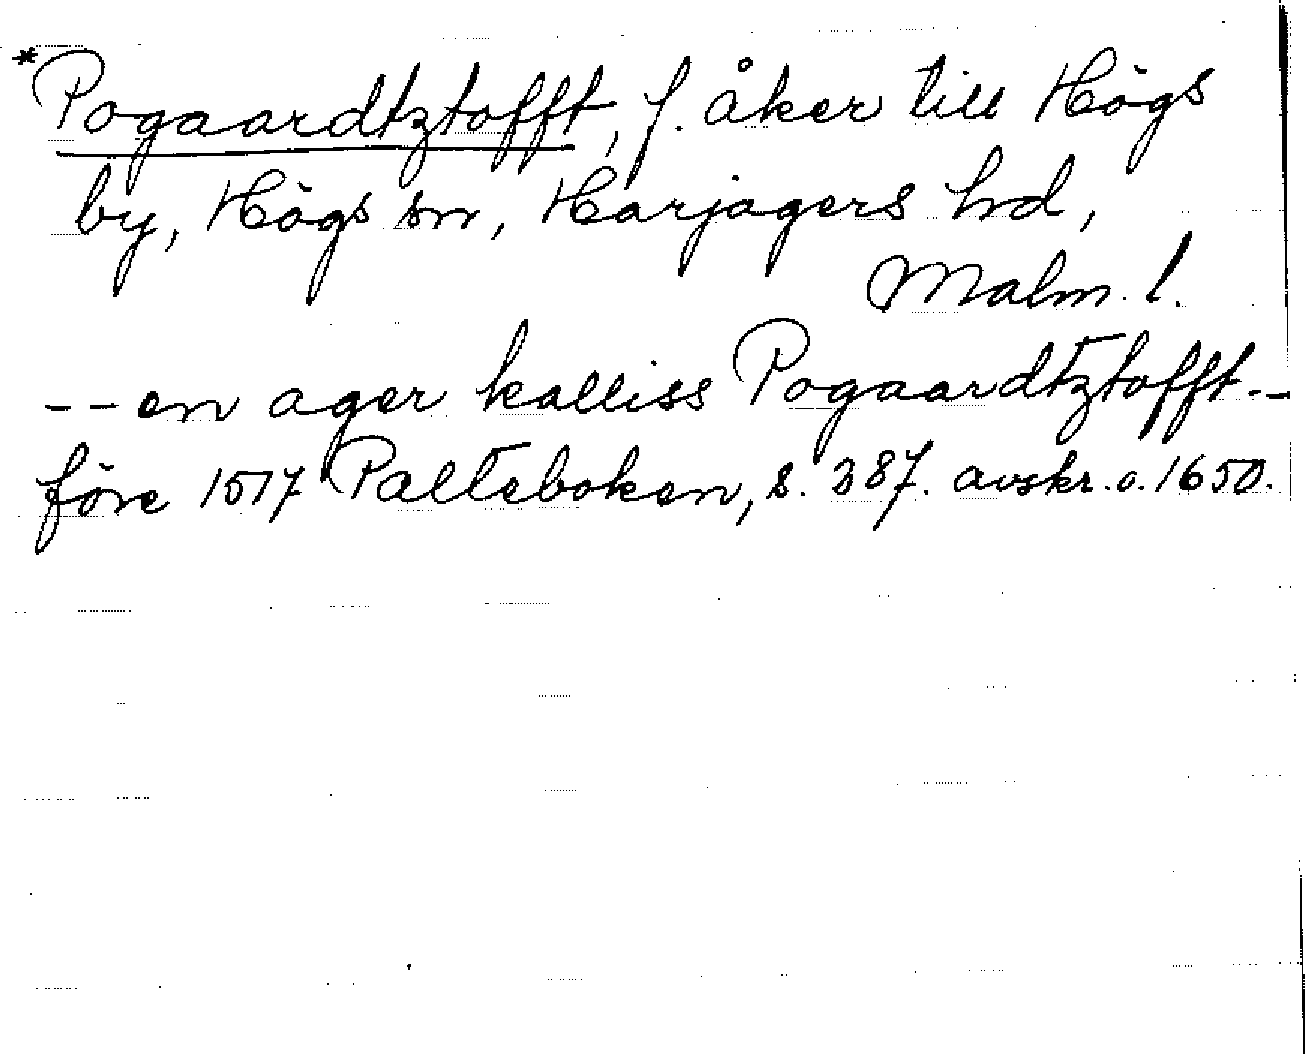 *Pogaardtztofft, f. åker till Högs
by, Högs sn, Harjagers hd,
Malm. l.
-- en ager kalliss Pogaardtztofft --
före 1517 Palteboken, s. 387. avskr. o. 1650.